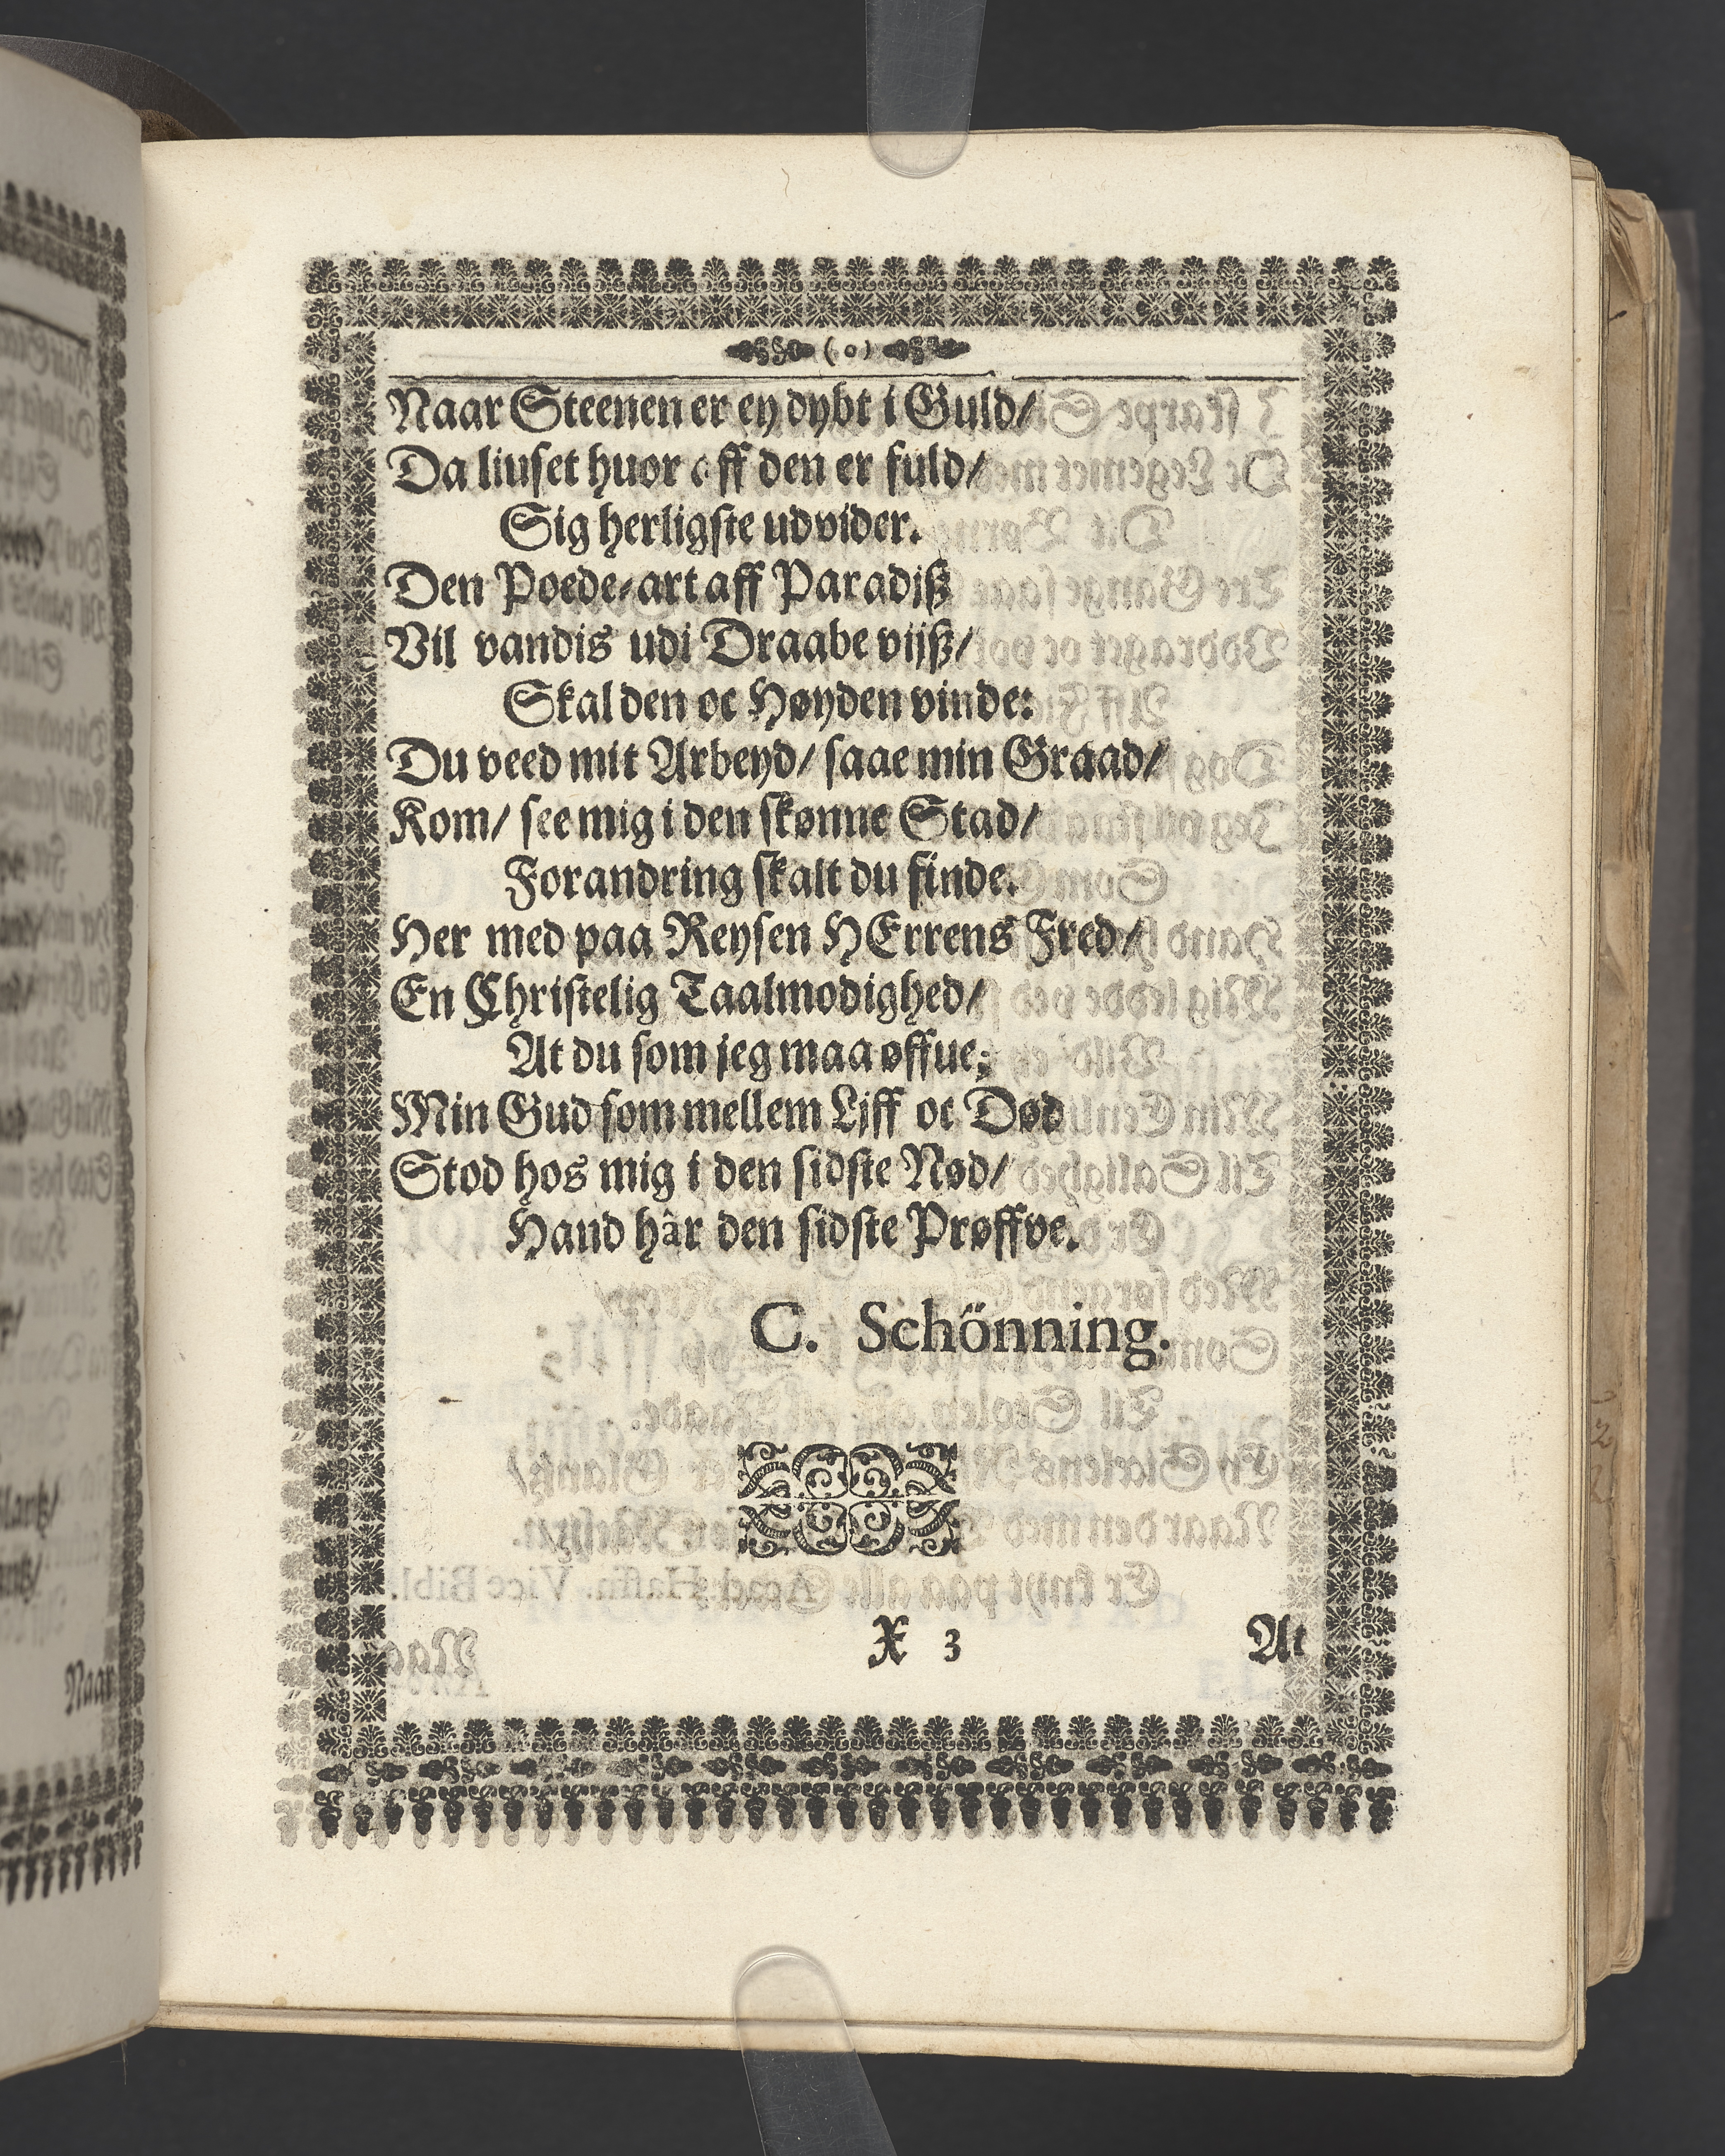 (o)
Naar Steenen er ey dybt i Guld/
Da liuset huor aff den er fuld/
Sig herligste udvider.
Den Poede-art aff Paradjß
Vil vandis udi Draabe vijß/
Skal den oc Høyden vinde:
Du veed mit Arbeyd/ saae min Graad/
Kom/ see mig i den skønne Stad/
Forandring skalt du finde.
Her med paa Reysen HErrens Fred/
En Christelig Taalmodighed/
At du som jeg maa øffue;
Min Gud som mellem Ljff oc Død
Stod hos mig i den sidste Nød/
Hand hâr den sidste Prøffve.
C. Schönning.
X 3
At
Naar